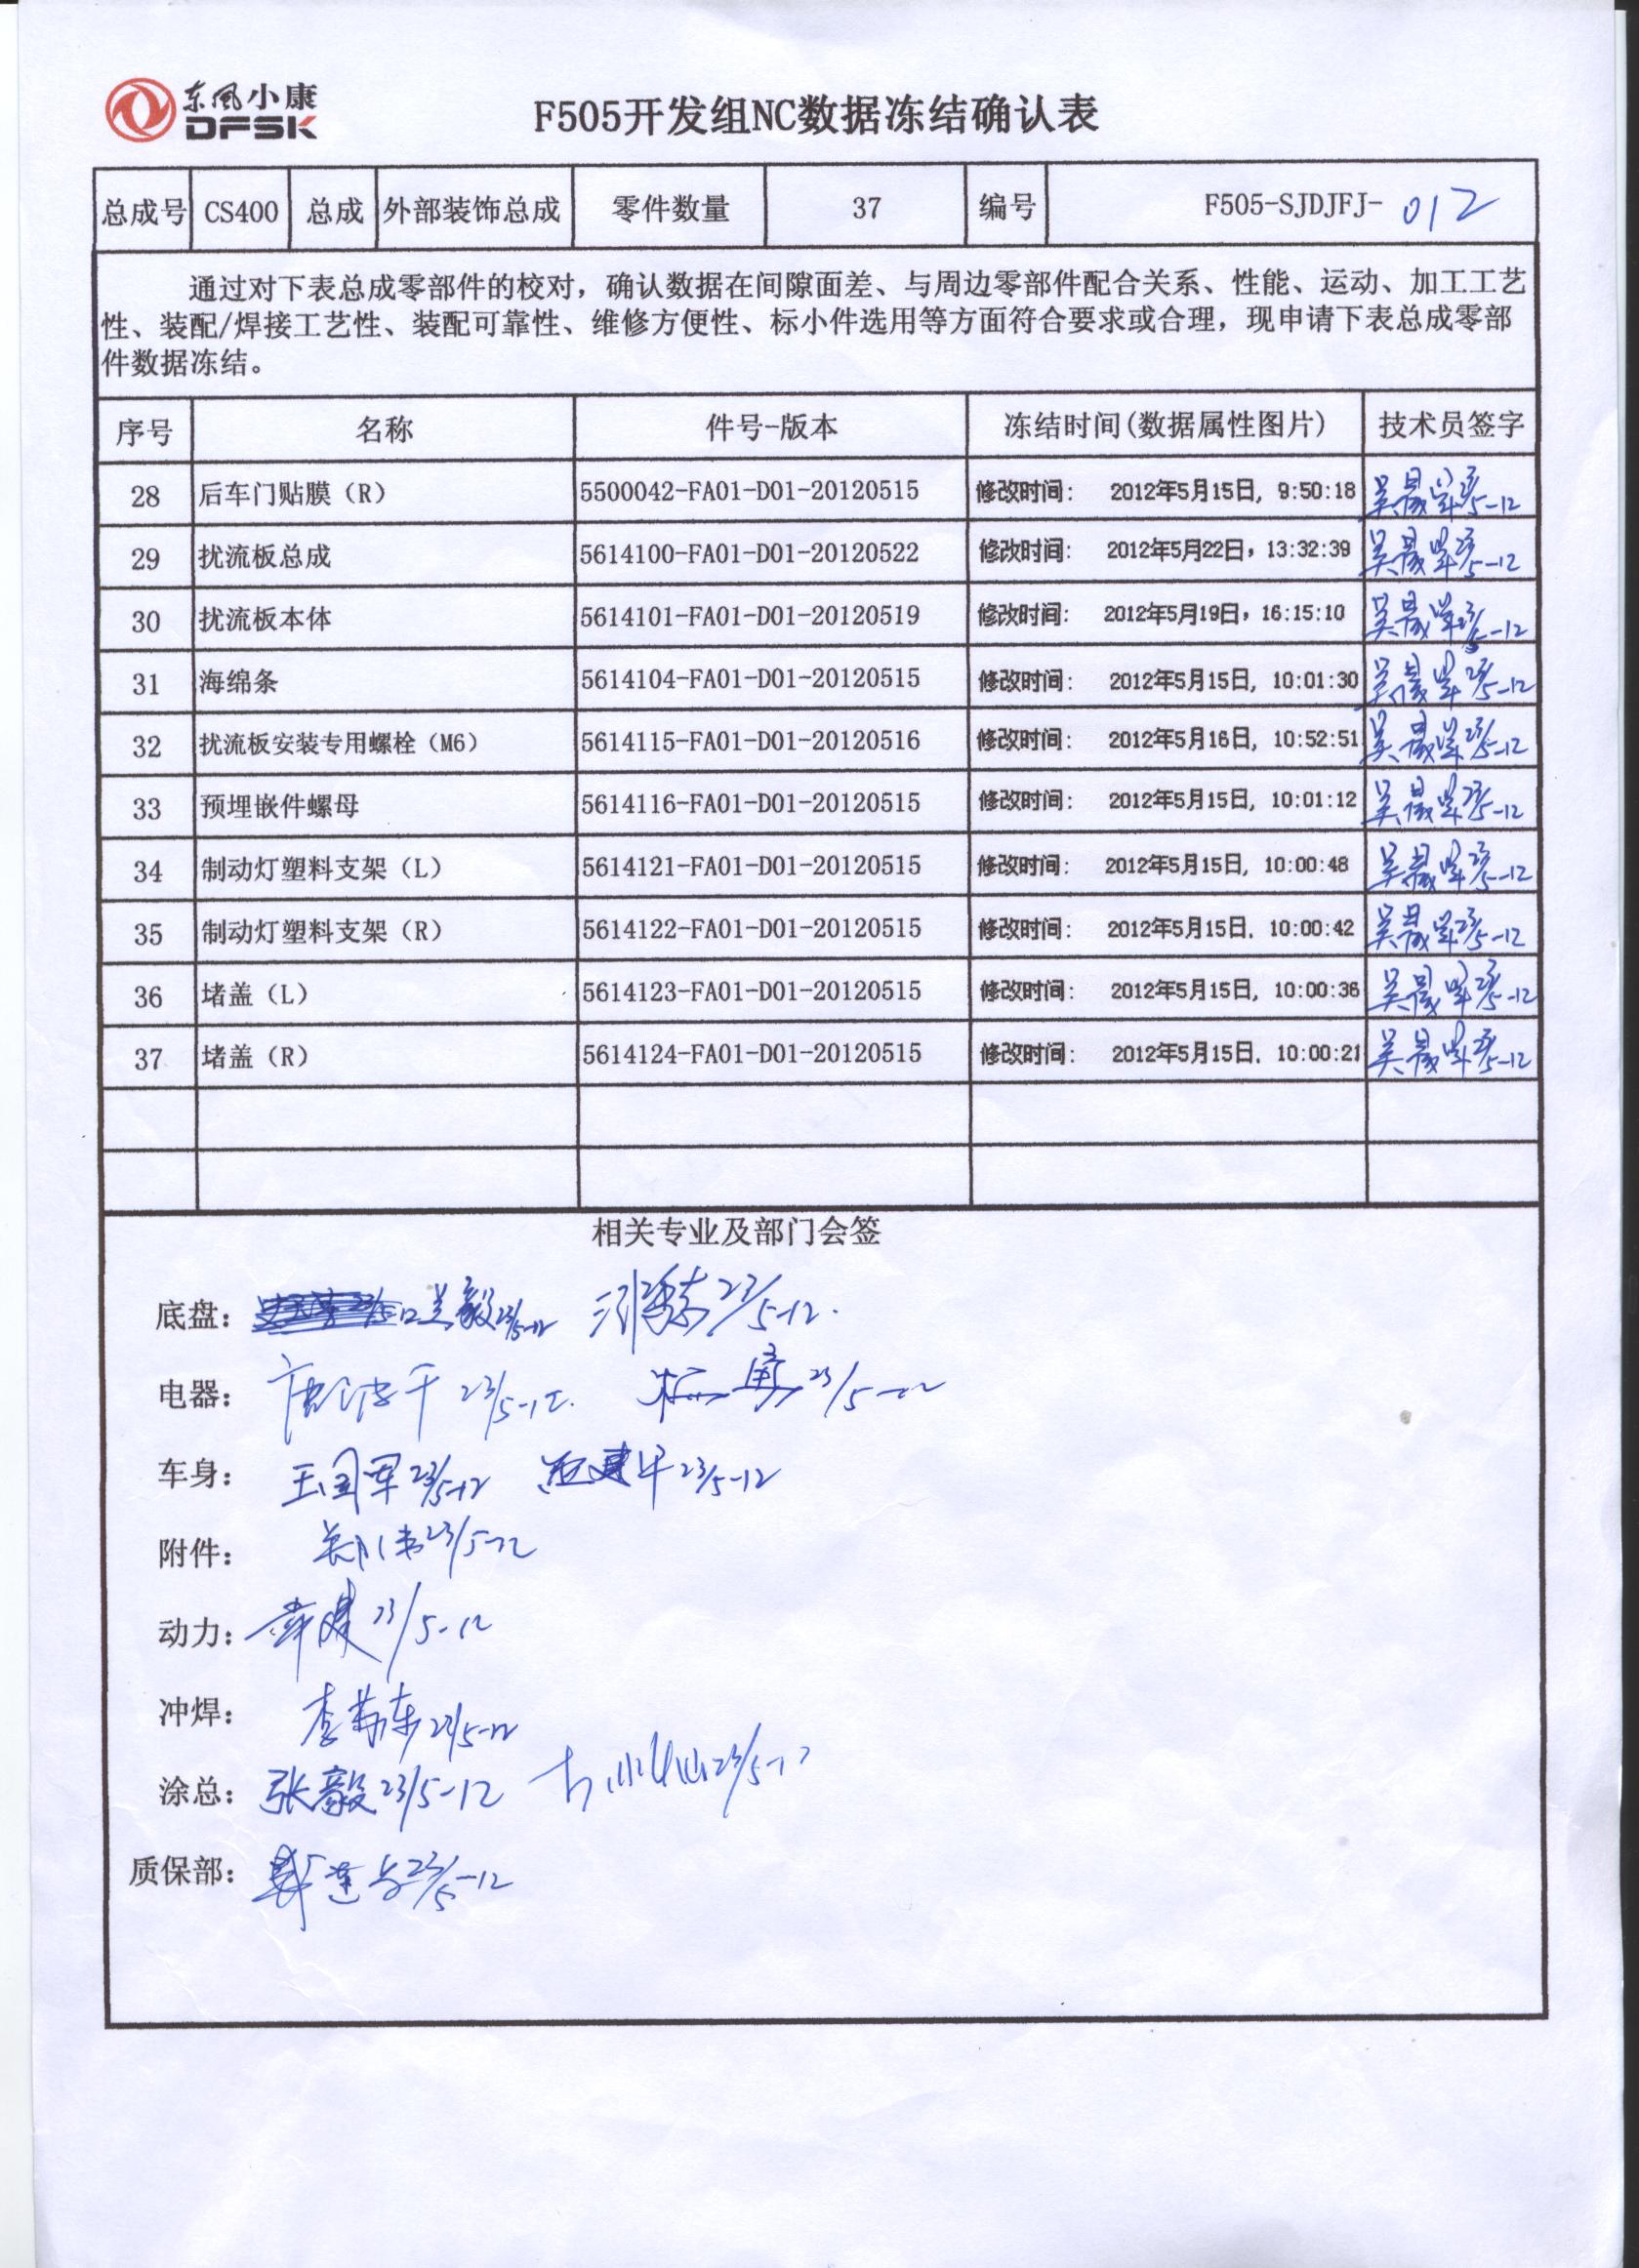 东风小康
DFSK
F505开发组NC数据冻结确认表
总成号 CS400 总成 外部装饰总成 零件数量 37 编号 F505-SJDJFJ-012
通过对下表总成零部件的校对，确认数据在间隙面差、与周边零部件配合关系、性能、运动、加工工艺
性、装配/焊接工艺性、装配可靠性、维修方便性、标小件选用等方面符合要求或合理，现申请下表总成零部
件数据冻结。
序号 名称 件号-版本 冻结时间(数据属性图片) 技术员签字
28 后车门贴膜（R） 5500042-FA01-D01-20120515 修改时间： 2012年5月15日, 9:50:18 23/5-12
29 扰流板总成 5614100-FA01-D01-20120522 修改时间： 2012年5月22日, 13:32:39 23/5-12
30 扰流板本体 5614101-FA01-D01-20120519 修改时间： 2012年5月19日, 16:15:10 23/5-12
31 海绵条 5614104-FA01-D01-20120515 修改时间： 2012年5月15日, 10:01:30 23/5-12
32 扰流板安装专用螺栓（M6） 5614115-FA01-D01-20120516 修改时间： 2012年5月16日, 10:52:51 23/5-12
33 预埋嵌件螺母 5614116-FA01-D01-20120515 修改时间： 2012年5月15日, 10:01:12 23/5-12
34 制动灯塑料支架（L） 5614121-FA01-D01-20120515 修改时间： 2012年5月15日, 10:00:48 23/5-12
35 制动灯塑料支架（R） 5614122-FA01-D01-20120515 修改时间： 2012年5月15日, 10:00:42 23/5-12
36 堵盖（L） 5614123-FA01-D01-20120515 修改时间： 2012年5月15日, 10:00:36 23/5-12
37 堵盖（R） 5614124-FA01-D01-20120515 修改时间： 2012年5月15日, 10:00:21 23/5-12
相关专业及部门会签
底盘： 23/5-12 23/5-12.
电器： 23/5-12. 23/5-12
车身： 王国军 23/5-12 23/5-12
附件： 23/5-12
动力： 23/5-12
冲焊： 23/5-12
涂总： 张毅 23/5-12 23/5-12
质保部： 23/5-12